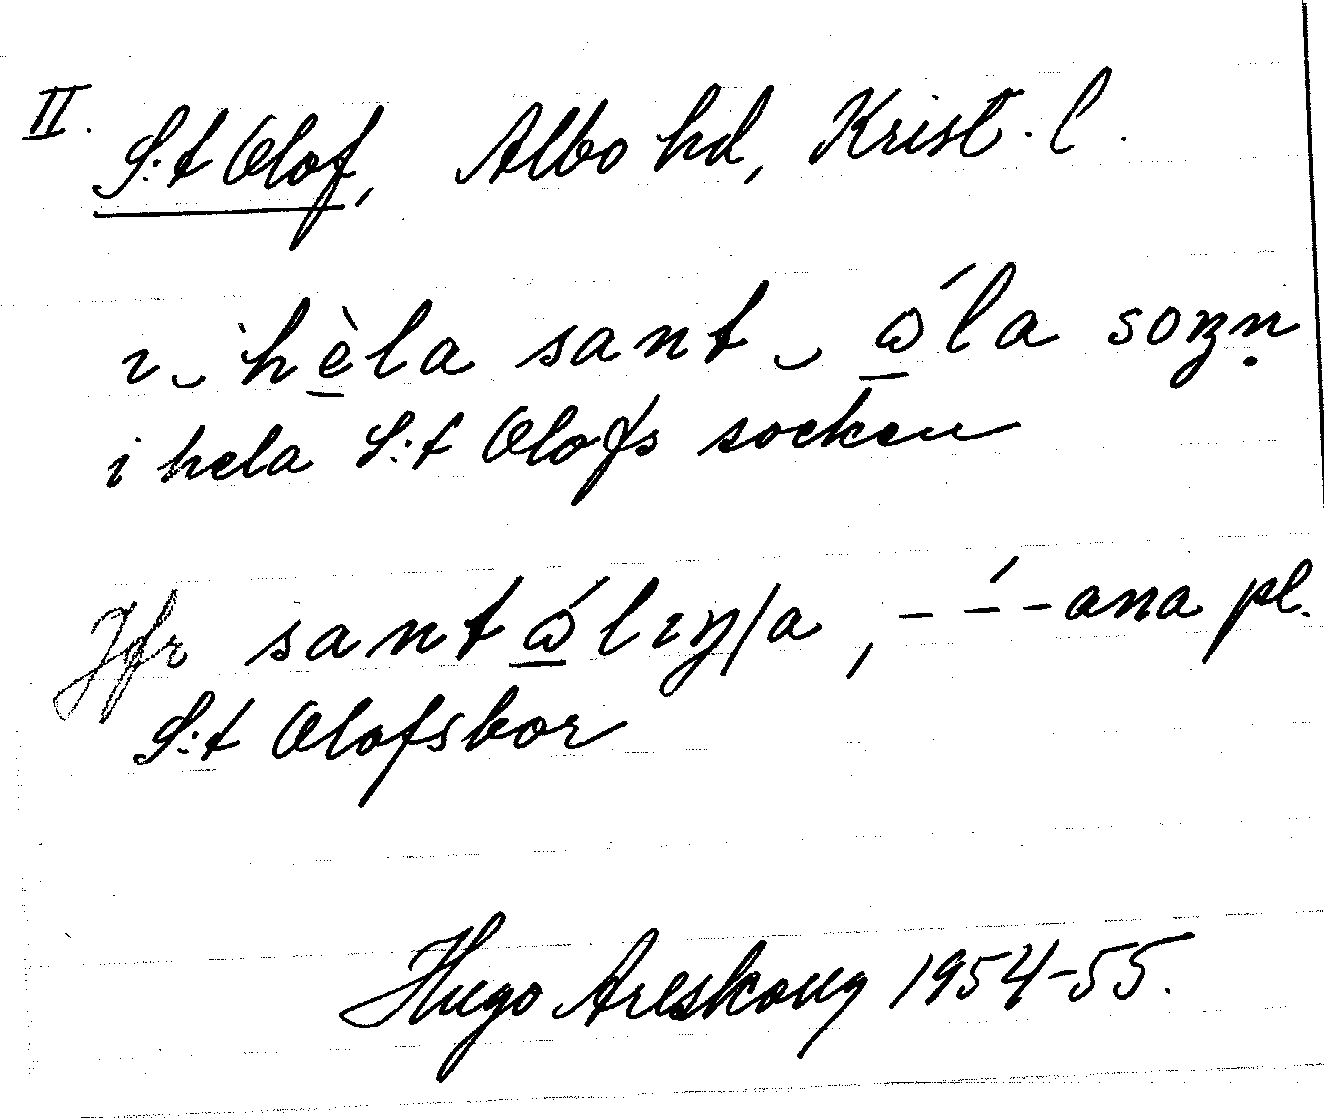 II. S:t Olof, Albo hd, Krist. l.
ı‿hèla sant‿ɷ́la soʒṇ
i hela S:t Olofs socken
Jfr santɷ́lıŋ/a, - -́ -ana pl.
S:t Olofsbor
Hugo Areskoug 1954-55.